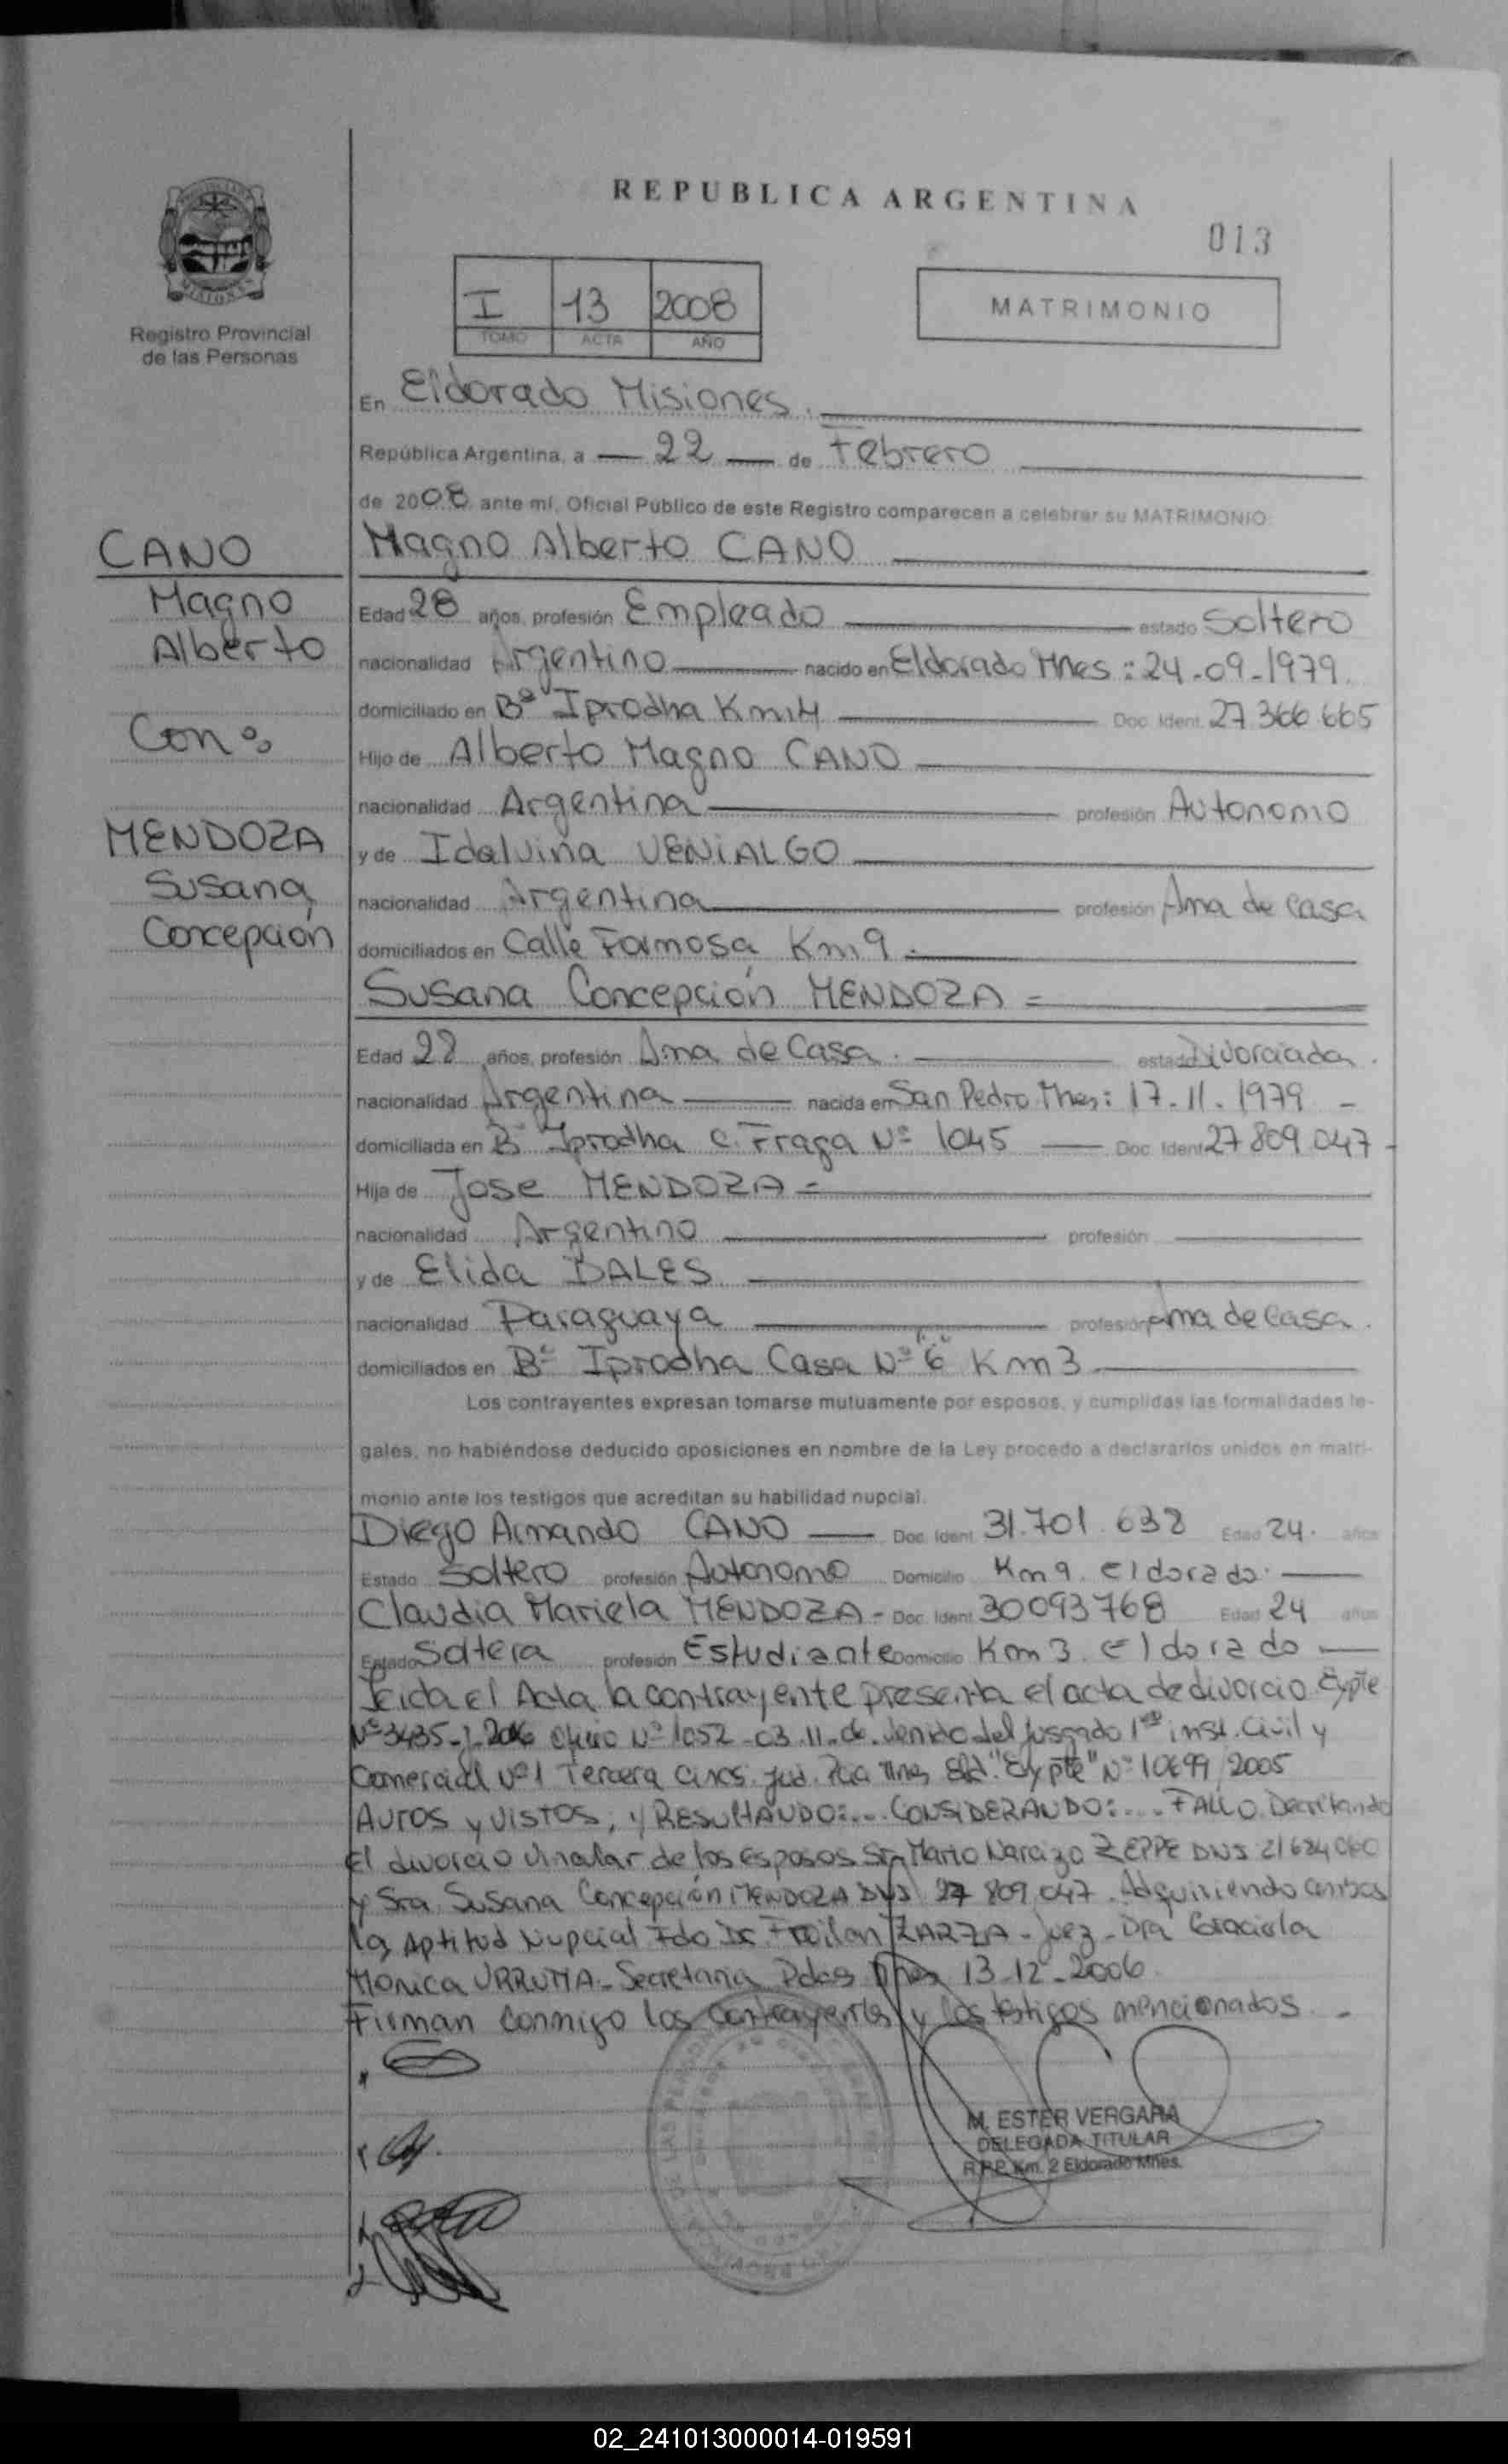 REPUBLICA ARGENTINA
013
I 13 2008
TOMO ACTA AÑO
MATRIMONIO
Registro Provincial
de las Personas
En Eldorado Misiones.
República Argentina, a 22 de Febrero
de 2008 ante mí, Oficial Público de este Registro comparecen a celebrar su MATRIMONIO:
CANO
Magno
Alberto
Con:
MENDOZA
Susana
Concepción
Magno Alberto CANO
Edad 28 años, profesión Empleado estado Soltero
nacionalidad Argentino nacido en Eldorado Mnes: 24-09-1979.
domiciliado en Bº Iprodha Km 4 Doc. Ident. 27.366.665
Hijo de Alberto Magno CANO
nacionalidad Argentina profesión Autonomo
y de Idalvina VENIALGO
nacionalidad Argentina profesión Ama de Casa
domiciliados en Calle Formosa Km 9.
Susana Concepción MENDOZA =
Edad 28 años, profesión Ama de Casa. estado Divorciada.
nacionalidad Argentina nacida en San Pedro Mnes: 17-11-1979 -
domiciliada en Bº Iprodha C. Fraga Nº 1045 Doc. Ident. 27.809.047 -
Hija de Jose MENDOZA =
nacionalidad Argentino profesión
y de Elida BALES
nacionalidad Paraguaya profesión Ama de Casa.
domiciliados en Bº Iprodha Casa Nº 6 Km 3
Los contrayentes expresan tomarse mutuamente por esposos, y cumplidas las formalidades le-
gales, no habiéndose deducido oposiciones en nombre de la Ley procedo a declararlos unidos en matri-
monio ante los testigos que acreditan su habilidad nupcial.
Diego Armando CANO Doc. Ident. 31.701.632 Edad 24. años
Estado Soltero profesión Autonomo Domicilio Km 9. Eldorado.
Claudia Mariela MENDOZA - Doc. Ident. 30093768 Edad 24 años
Estado Soltera profesión Estudiante Domicilio Km 3. Eldorado
Leida el Acta la contrayente presenta el acta de divorcio Expte
Nº 3435-J-2006 Oficio Nº 1052-03.11. venido del Jusgado 1ª inst. Civil y
Comercial Nº 1 Tercera Circs. Jud. Mnes Eld. "Expte" Nº 10699/2005
AUTOS y VISTOS, y RESULTANDO:... CONSIDERANDO:... FALLO. Decretando
el divorcio vincular de los esposos Sr. Mario Narcizo ZEPPE DNI 21624060
y Sra. Susana Concepción MENDOZA DNI 27 809.047. Adquiriendo ambos
la Aptitud Nupcial Fdo Dr. Froilan ZARZA - Juez - Dra Graciela
Monica URRUTIA - Secretaria Pdas Mnes 13-12-2006.
Firman conmigo los contrayentes y los testigos mencionados. -
M. ESTER VERGARA
DELEGADA TITULAR
R.P.P. Km. 2 Eldorado Mnes.
02_241013000014-019591